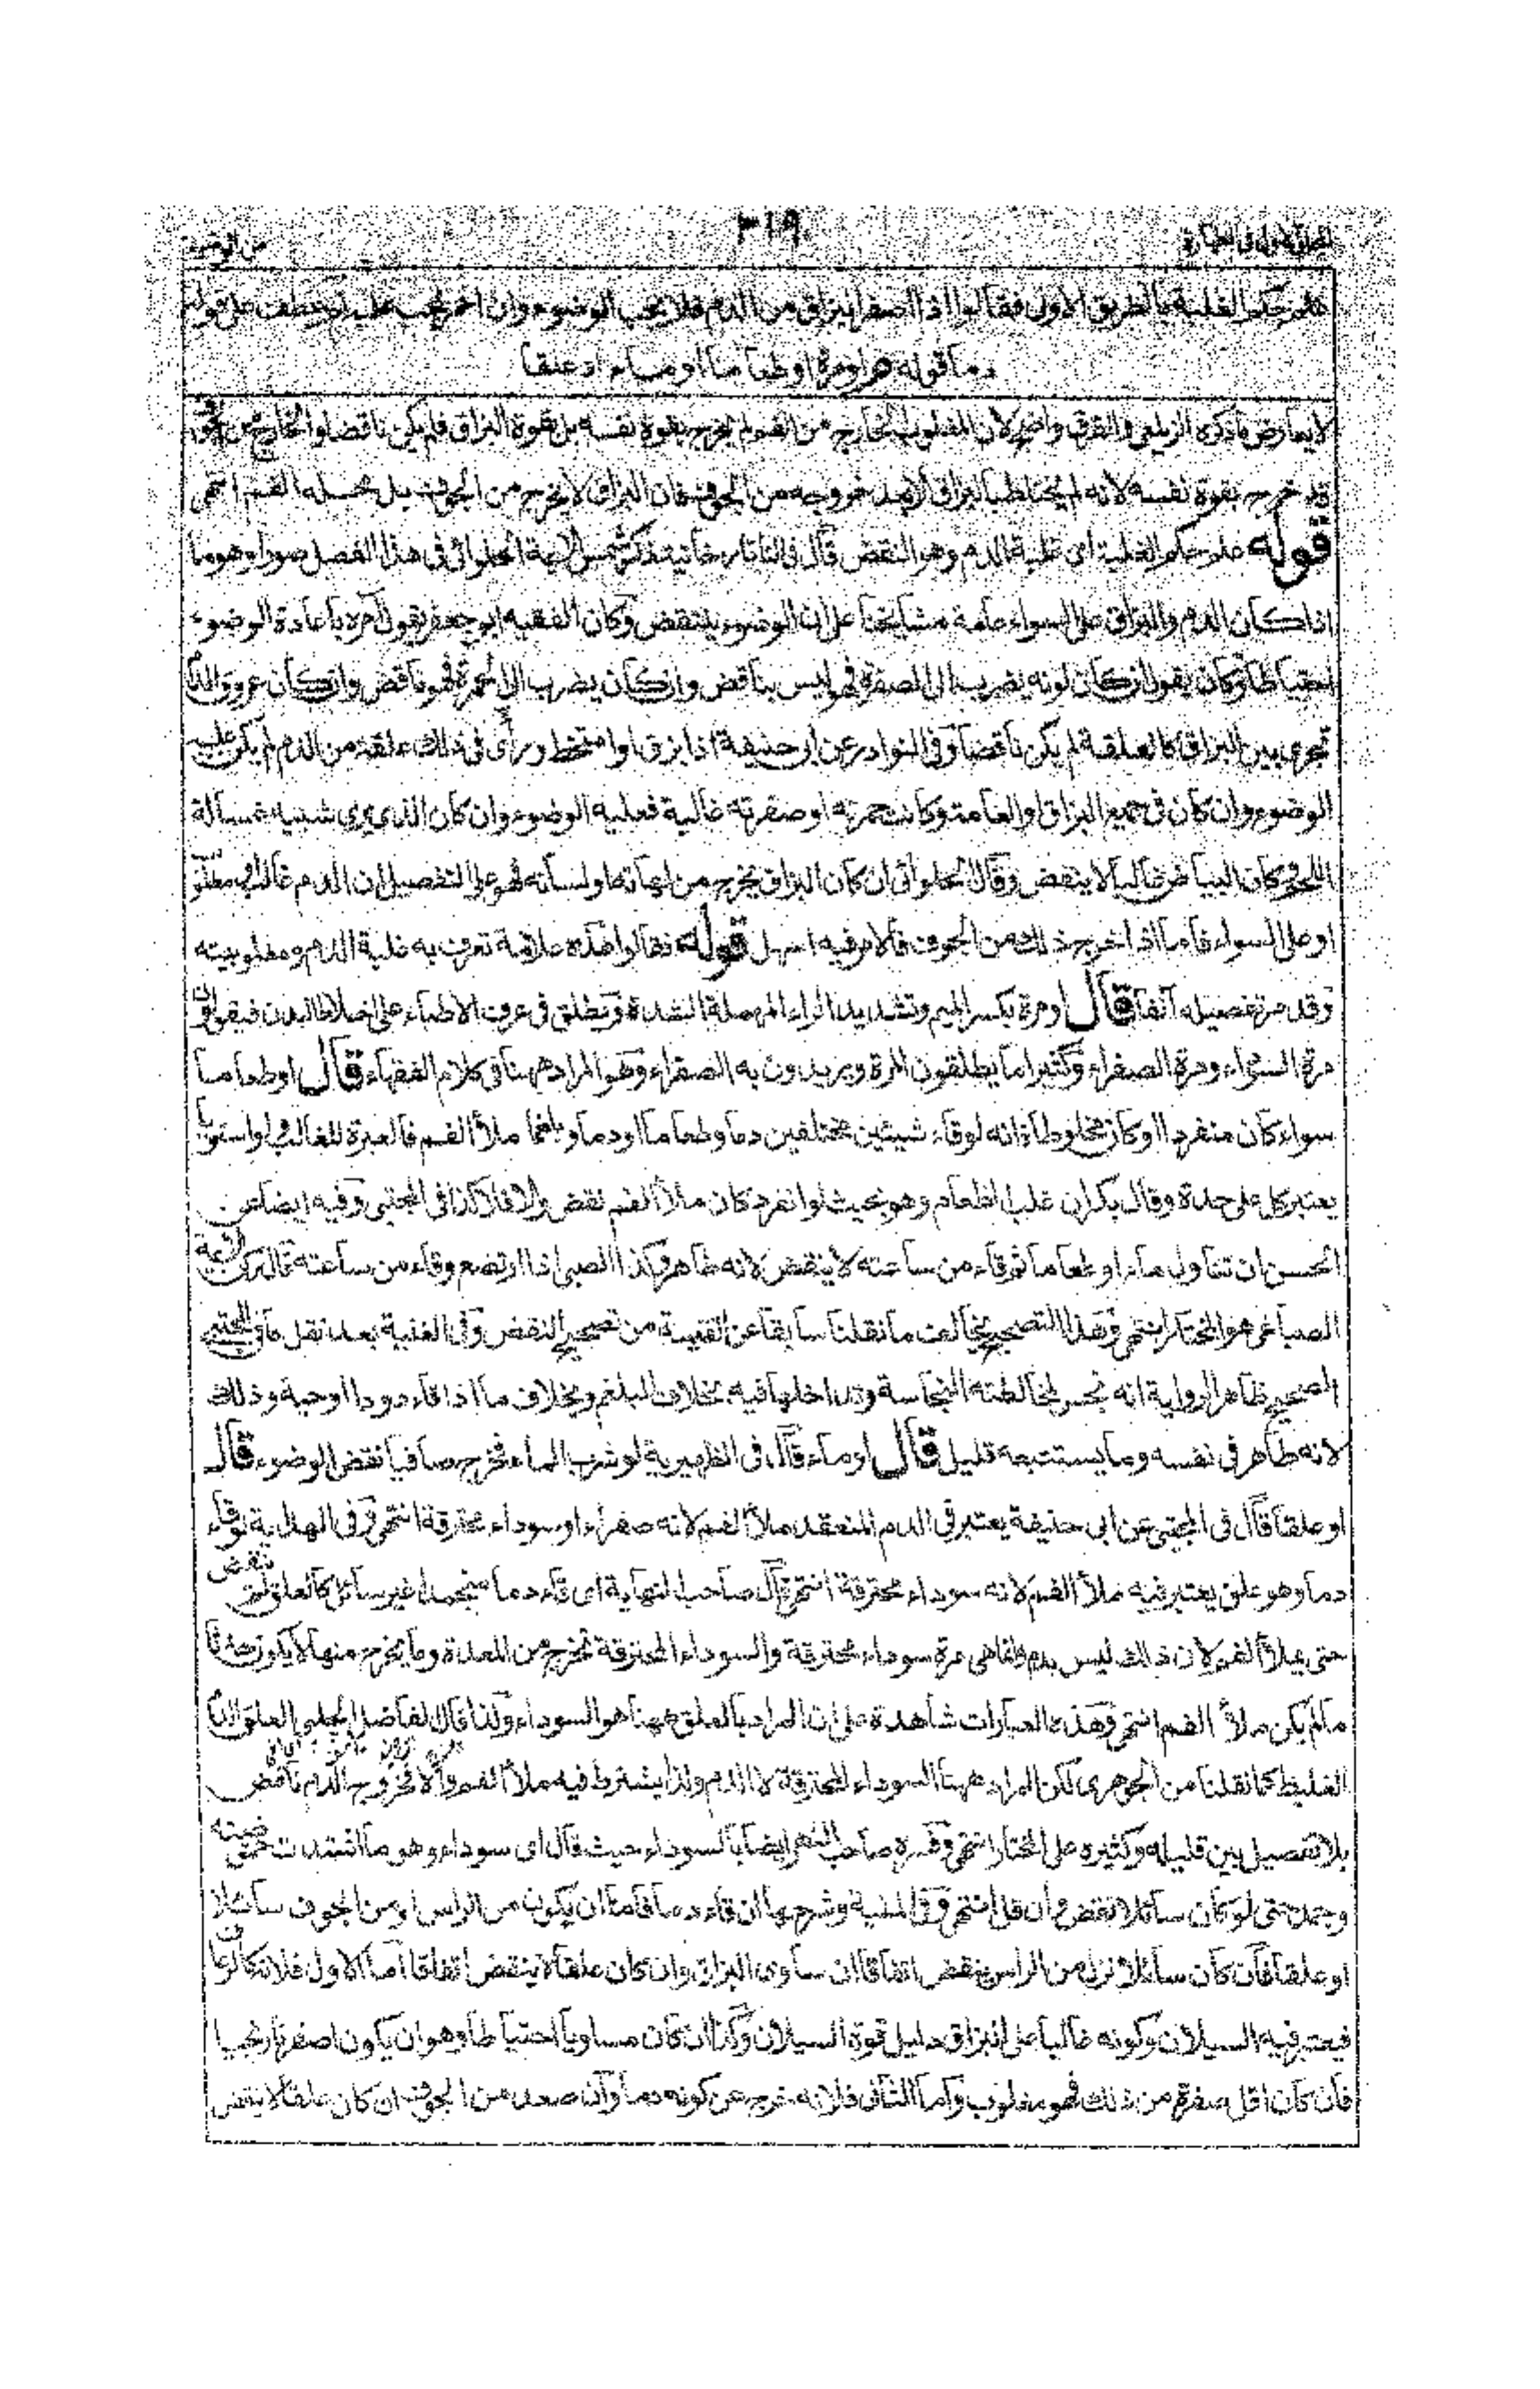 ٢١٩
علم حكم الغلبة بالطريق الاولى فقالوا اذا اصفر البزاق من الدم فلا يجب الوضوء وان احمر يجب ثم عطف على قوله
دما قوله او مرة او طعاما او ماء او علقا
لا يعارض ما ذكره الزيلعي والفرق واضح لان المغلوب الخارج من الفم لم يخرج بقوة نفسه بل بقوة البزاق فلم يكن ناقضا والخارج من الجوف
قد خرج بقوة نفسه لانه لم يختلط بالبزاق الا بعد خروجه من الجوف فان البزاق لا يخرج من الجوف بل محله الفم انتهى
قوله علم حكم الغلبة اي غلبة الدم وهو النقض قال في التاتارخانية ذكر شمس الائمة الحلوائي في هذا الفصل صورا وهو ما
اذا كان الدم والبزاق على السواء عامة مشائخنا على ان الوضوء ينتقض وكان الفقيه ابو جعفر يقول آمره باعادة الوضوء
احتياطا وكان يقول ان كان لونه يضرب الى الصفرة فهو ليس بناقض وان كان يضرب الى الحمرة فهو ناقض وان كان عروق الدم
تجري بين البزاق كالعلقة لم يكن ناقضا وفي النوادر عن ابي حنيفة اذا بزق او امتخط ورأى في ذلك علقة من الدم لم يكن عليه
الوضوء وان كان في جميع البزاق او العامة وكانت حمرته او صفرته غالبة فعليه الوضوء وان كان الذي يرى شبيه غسالة
اللحم كان البياض غالبا لا ينقض وقال الحلوائي ان كان البزاق يخرج من لهاته او لسانه فهو على التفصيل ان الدم غالب او مغلوب
او على السواء فاما اذا خرج ذلك من الجوف فالامر فيه اسهل قوله فقالوا هذه علامة تعرف به غلبة الدم ومغلوبيته
وقد مر تفصيله آنفا قال او مرة بكسر الميم وتشديد الراء المهملة الشدة وتطلق في عرف الاطباء على اخلاط البدن فيقولون
مرة السوداء ومرة الصفراء وكثيرا ما يطلقون المرة ويريدون به الصفراء وهو المراد ههنا في كلام الفقهاء قال او طعاما
سواء كان منفردا او كان مخلوطا فانه لو قاء شيئين مختلفين دما وطعاما او دما وبلغما ملأ الفم فالعبرة للغالب ولو استويا
يعتبر كل على حدة وقال بكر ان غلب الطعام وهو بحيث لو انفرد كان ملأ الفم نقض والا فلا كذا في المجتبى وفيه ايضا عن
الحسن ان تناول ماء او طعاما ثم قاء من ساعته لا ينقض لانه طاهر وكذا الصبي اذا ارتضع وقاء من ساعته قال ركن الائمة
الصباغي هو المختار انتهى وهذا التصحيح يخالف ما نقلنا سابقا عن القنية من تصحيح النقض وفي الغنية بعد نقل ما في المجتبى
الصحيح ظاهر الرواية انه نجس لمخالطته النجاسة وتداخلها فيه بخلاف البلغم وبخلاف ما اذا قاء دودا او حية وذلك
لانه طاهر في نفسه وما يستتبعه قليل قال او ماء قال في الظهيرية لو شرب الماء فخرج صافيا نقض الوضوء قال
او علقا قال في المجتبى عن ابي حنيفة يعتبر في الدم المنعقد ملأ الفم لانه صفراء او سوداء محترقة انتهى وفي الهداية لو قاء
دما وهو علق يعتبر فيه ملأ الفم لانه سوداء محترقة انتهى قال صاحب النهاية اي قاء دما منجمدا غير سائل كالعلق لم ينقض
حتى يملأ الفم لان ذلك ليس بدم وانما هي مرة سوداء محترقة والسوداء المحترقة تخرج من المعدة وما يخرج منها لا يكون حدثا
ما لم يكن ملأ الفم انتهى وهذه العبارات شاهدة على ان المراد بالعلق ههنا هو السوداء ولذا قال الفاضل الچلبي العلق الدم
الغليظ كما نقلنا من الجوهري لكن المراد ههنا السوداء المحترقة لا الدم ولذا يشترط فيه ملأ الفم والا فخروج الدم ناقض
بلا تفصيل بين قليله وكثيره على المختار انتهى وفسره صاحب النهر ايضا بالسوداء حيث قال اي سوداء وهو ما اشتدت حموضته
وجمدت حتى لو كان سائلا نقض وان قل انتهى وفي المنية وشرحها ان قاء دما فاما ان يكون من الراس او من الجوف سائلا
او علقا فان كان سائلا نزل من الراس ينقض اتفاقا ان ساوى البزاق وان كان علقا لا ينقض اتفاقا اما الاول فلانه كالرعاف
فيعتبر فيه السيلان وكونه غالبا على البزاق دليل قوة السيلان وكذا ان كان مساويا احتياطا وهو ان يكون اصفر نارنجيا
فان كان اقل صفرة من ذلك فهو مغلوب واما الثاني فلانه خرج عن كونه دما وان صعد من الجوف ان كان علقا لا ينقض